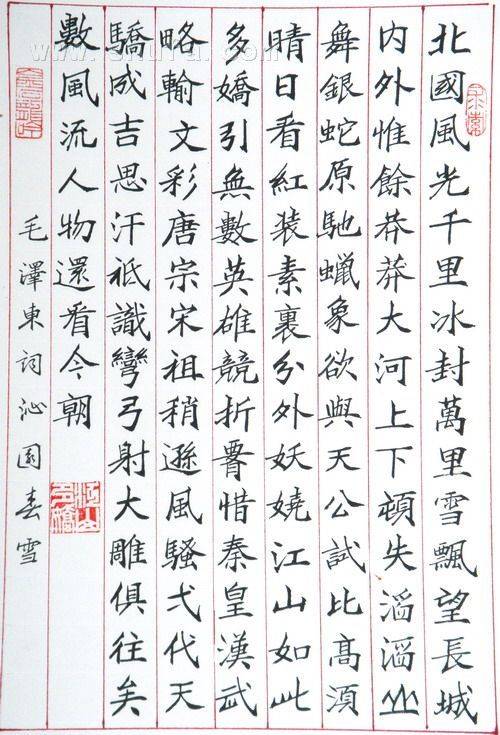 北國風光千里冰封萬里雪飄望長城
內外惟餘莽莽大河上下頓失滔滔山
舞銀蛇原馳蠟象欲與天公試比高須
晴日看紅装素裹分外妖嬈江山如此
多嬌引無數英雄競折腰惜秦皇漢武
略輸文彩唐宗宋祖稍遜風騷弌代天
驕成吉思汗祗識彎弓射大雕俱往矣
數風流人物還看今朝
江山多嬌
毛澤東詞沁園春雪